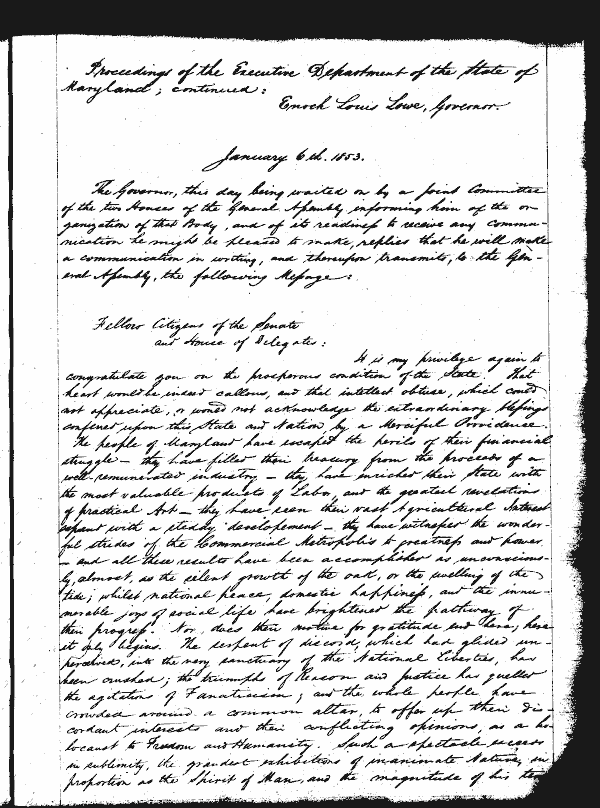 Proceedings of the Executive Department of the State of
Maryland; continued:
Enoch Louis Lowe, Governor.
January 6th. 1853.
The Governor, this day being waited on by a joint Committee
of the two Houses of the General Assembly, informing him of the or-
ganization of that Body, and of its readiness to receive any commu-
nication he might be pleased to make, replies that he will make
a communication in writing, and thereupon transmits, to the Gen-
eral Assembly, the following Message:
Fellow Citizens of the Senate
and House of Delegates:
It is my privilege again to
congratulate you on the prosperous condition of the State. That
heart would be indeed callous, and that intellect obtuse, which could
not appreciate, or would not acknowledge the extraordinary blessings
conferred upon this State and Nation, by a Merciful Providence.
The people of Maryland have escaped the perils of their financial
struggle — they have filled their treasury from the proceeds of a
well-remunerated industry — they have enriched their State with
the most valuable products of Labor, and the greatest revelations
of practical Art — they have seen their vast Agricultural Interest
expand with a steady developement — they have witnessed the wonder-
ful strides of the Commercial Metropolis to greatness and power
— and all these results have been accomplished as unconscious-
ly, almost, as the silent growth of the oak, or the swelling of the
tide; whilst national peace, domestic happiness, and the innu-
merable joys of social life have brightened the pathway of
their progress. Nor, does their motive for gratitude end here; here
it only begins. The serpent of discord, which had glided un-
perceived, into the very sanctuary of the National Liberties, has
been crushed; the triumphs of Reason and Justice has quelled
the agitations of Fanaticism; and the whole people have
crowded around a common altar, to offer up their dis-
cordant interests and their conflicting opinions, as a ho-
locaust to Freedom and Humanity. Such a spectacle exceeds
in sublimity, the grandest exhibitions of inanimate Nature, in
proportion as the Spirit of Man, and the magnitude of his